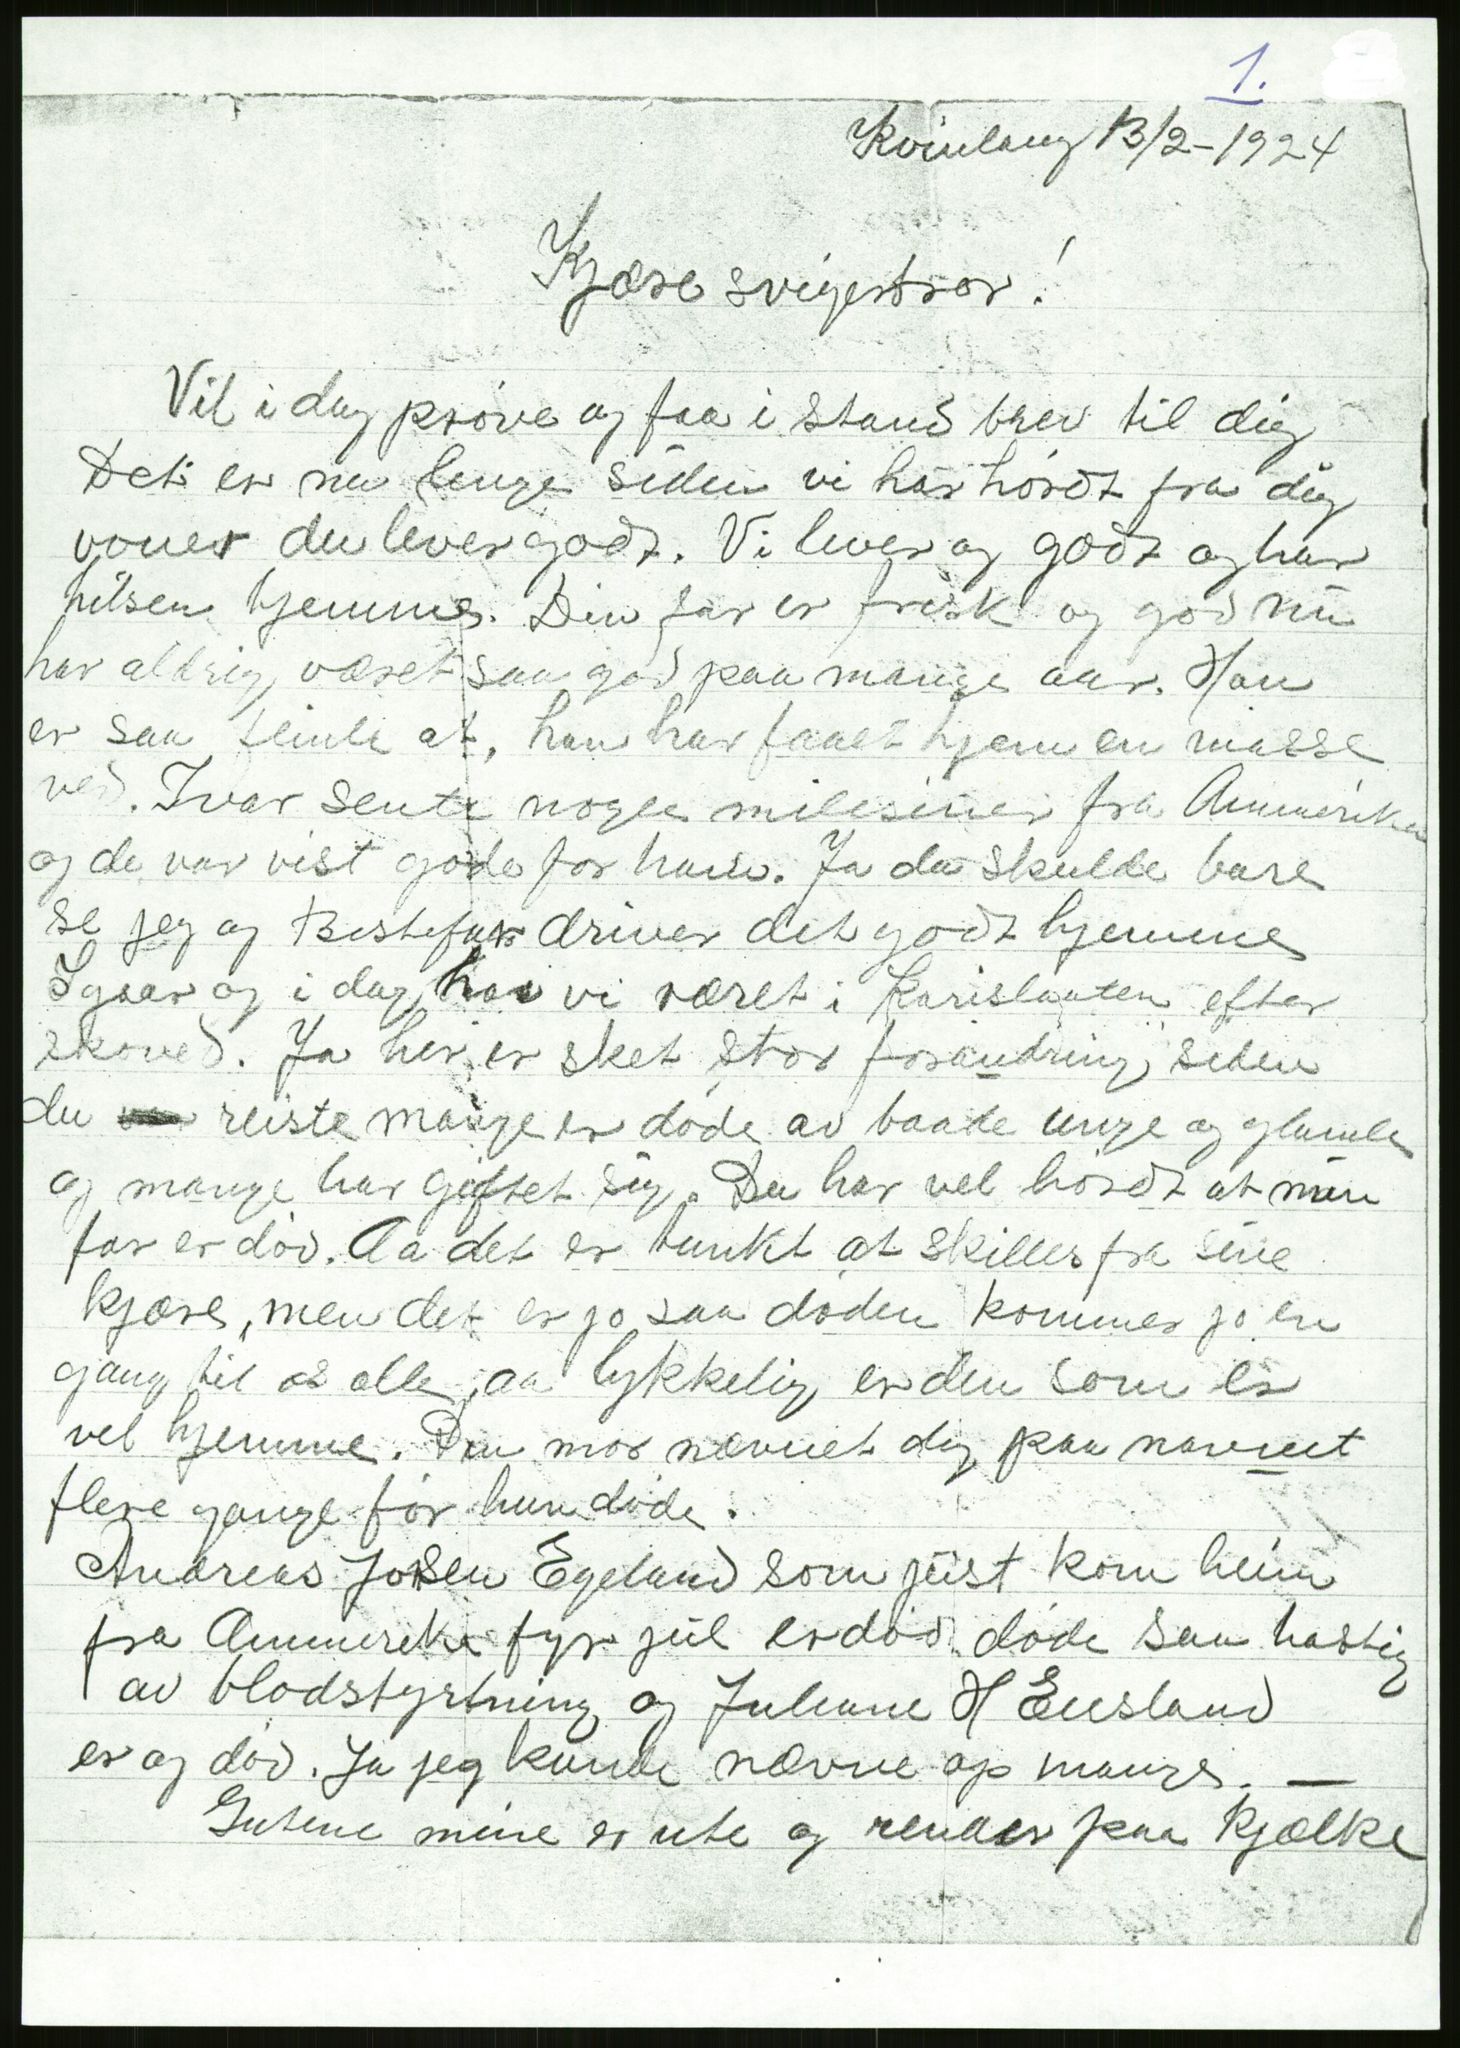 1.
Kvinlaug 13/2-1924
Kjære svigerbror!
Vil i dag prøve og faa i stand brev til dig
Det er nu lenge siden vi har hørdt fra dig
voner du lever godt. Vi lever og godt og har
hilsen hjemme. Din far er frisk og god nu
har aldrig været saa god paa mange aar. Han
er saa flinke at, han har faaet hjem en masse
ved. Ivar sente nogle milisiner fra Ammerika
og de var vist gode for ham. Ja du skulde bare
se jeg og Bestefar driver det godt hjemme
Igaar og i dag har vi været i Karislaaten efter
skoved. Ja her er sket stor forandring siden
du reiste mange er døde av baade unge og glamle
og mange har giftet sig. Du har vel hørdt at min
far er død. Aa det er tunkt at skilles fra sine
kjære, men det er jo saa døden kommer jo en
gang til os alle, aa lykkelig er den som er
vel hjemme. Din mor nævnet dig paa navnet
flere gange før hun døde.
Andreas Josen Egeland som jüst kom heim
fra Ammerika fyr jul er død døde saa hastig
av blodstyrtning og Juliane H Eiesland
er og død. Ja jeg kunde nævne op mange. —
Gutene mine er ute og renner paa kjælke